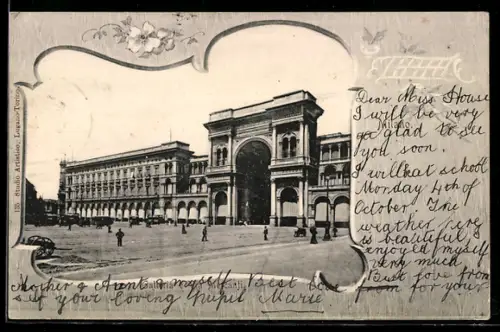 Dear Miss House
I will be very
Milano.
glad to see
you soon.
I will at school
Monday 4th of
October. The
weather here
is beautiful
enjoyed myself
very much
Best love from
Mother & Aunt & myself Best love from for your
self your loving Pupil Marie
Galleria
135 Studio Artistico, Lugano-Torino